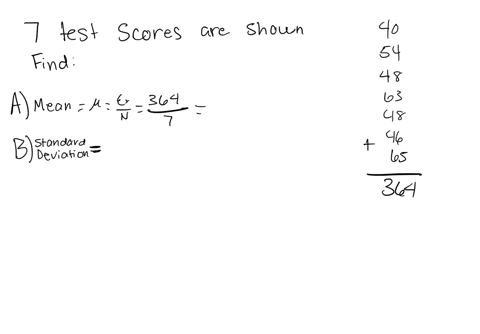 7 test Scores are shown
Find:
A) Mean = μ = Σx/N = 364/7 =
B) Standard Deviation =
40
54
48
63
48
46
+ 65
364